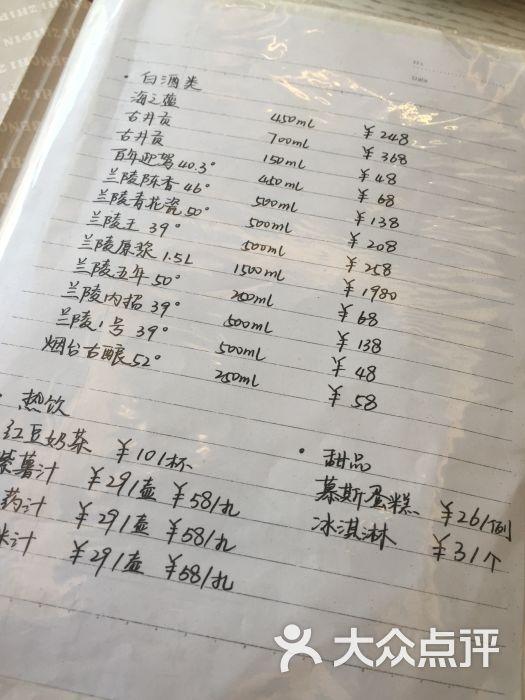 · 白酒类
海之蕴 450ml ¥248
古井贡 700ml ¥368
古井贡 150ml ¥48
百年迎驾40.3° 450ml ¥68
兰陵陈香46° 500ml ¥138
兰陵青花瓷50° 500ml ¥208
兰陵王 39° 500ml ¥258
兰陵原浆 1.5L 1500ml ¥1980
兰陵五年50° 200ml ¥68
兰陵内招 39° 500ml ¥138
兰陵1号 39° 500ml ¥48
烟台古酿52° 250ml ¥58
· 热饮
红豆奶茶 ¥10/杯
紫薯汁 ¥29/壶 ¥58/扎
药汁 ¥29/壶 ¥58/扎
米汁 ¥29/壶 ¥58/扎
· 甜品
慕斯蛋糕 ¥26/例
冰淇淋 ¥3/个
大众点评